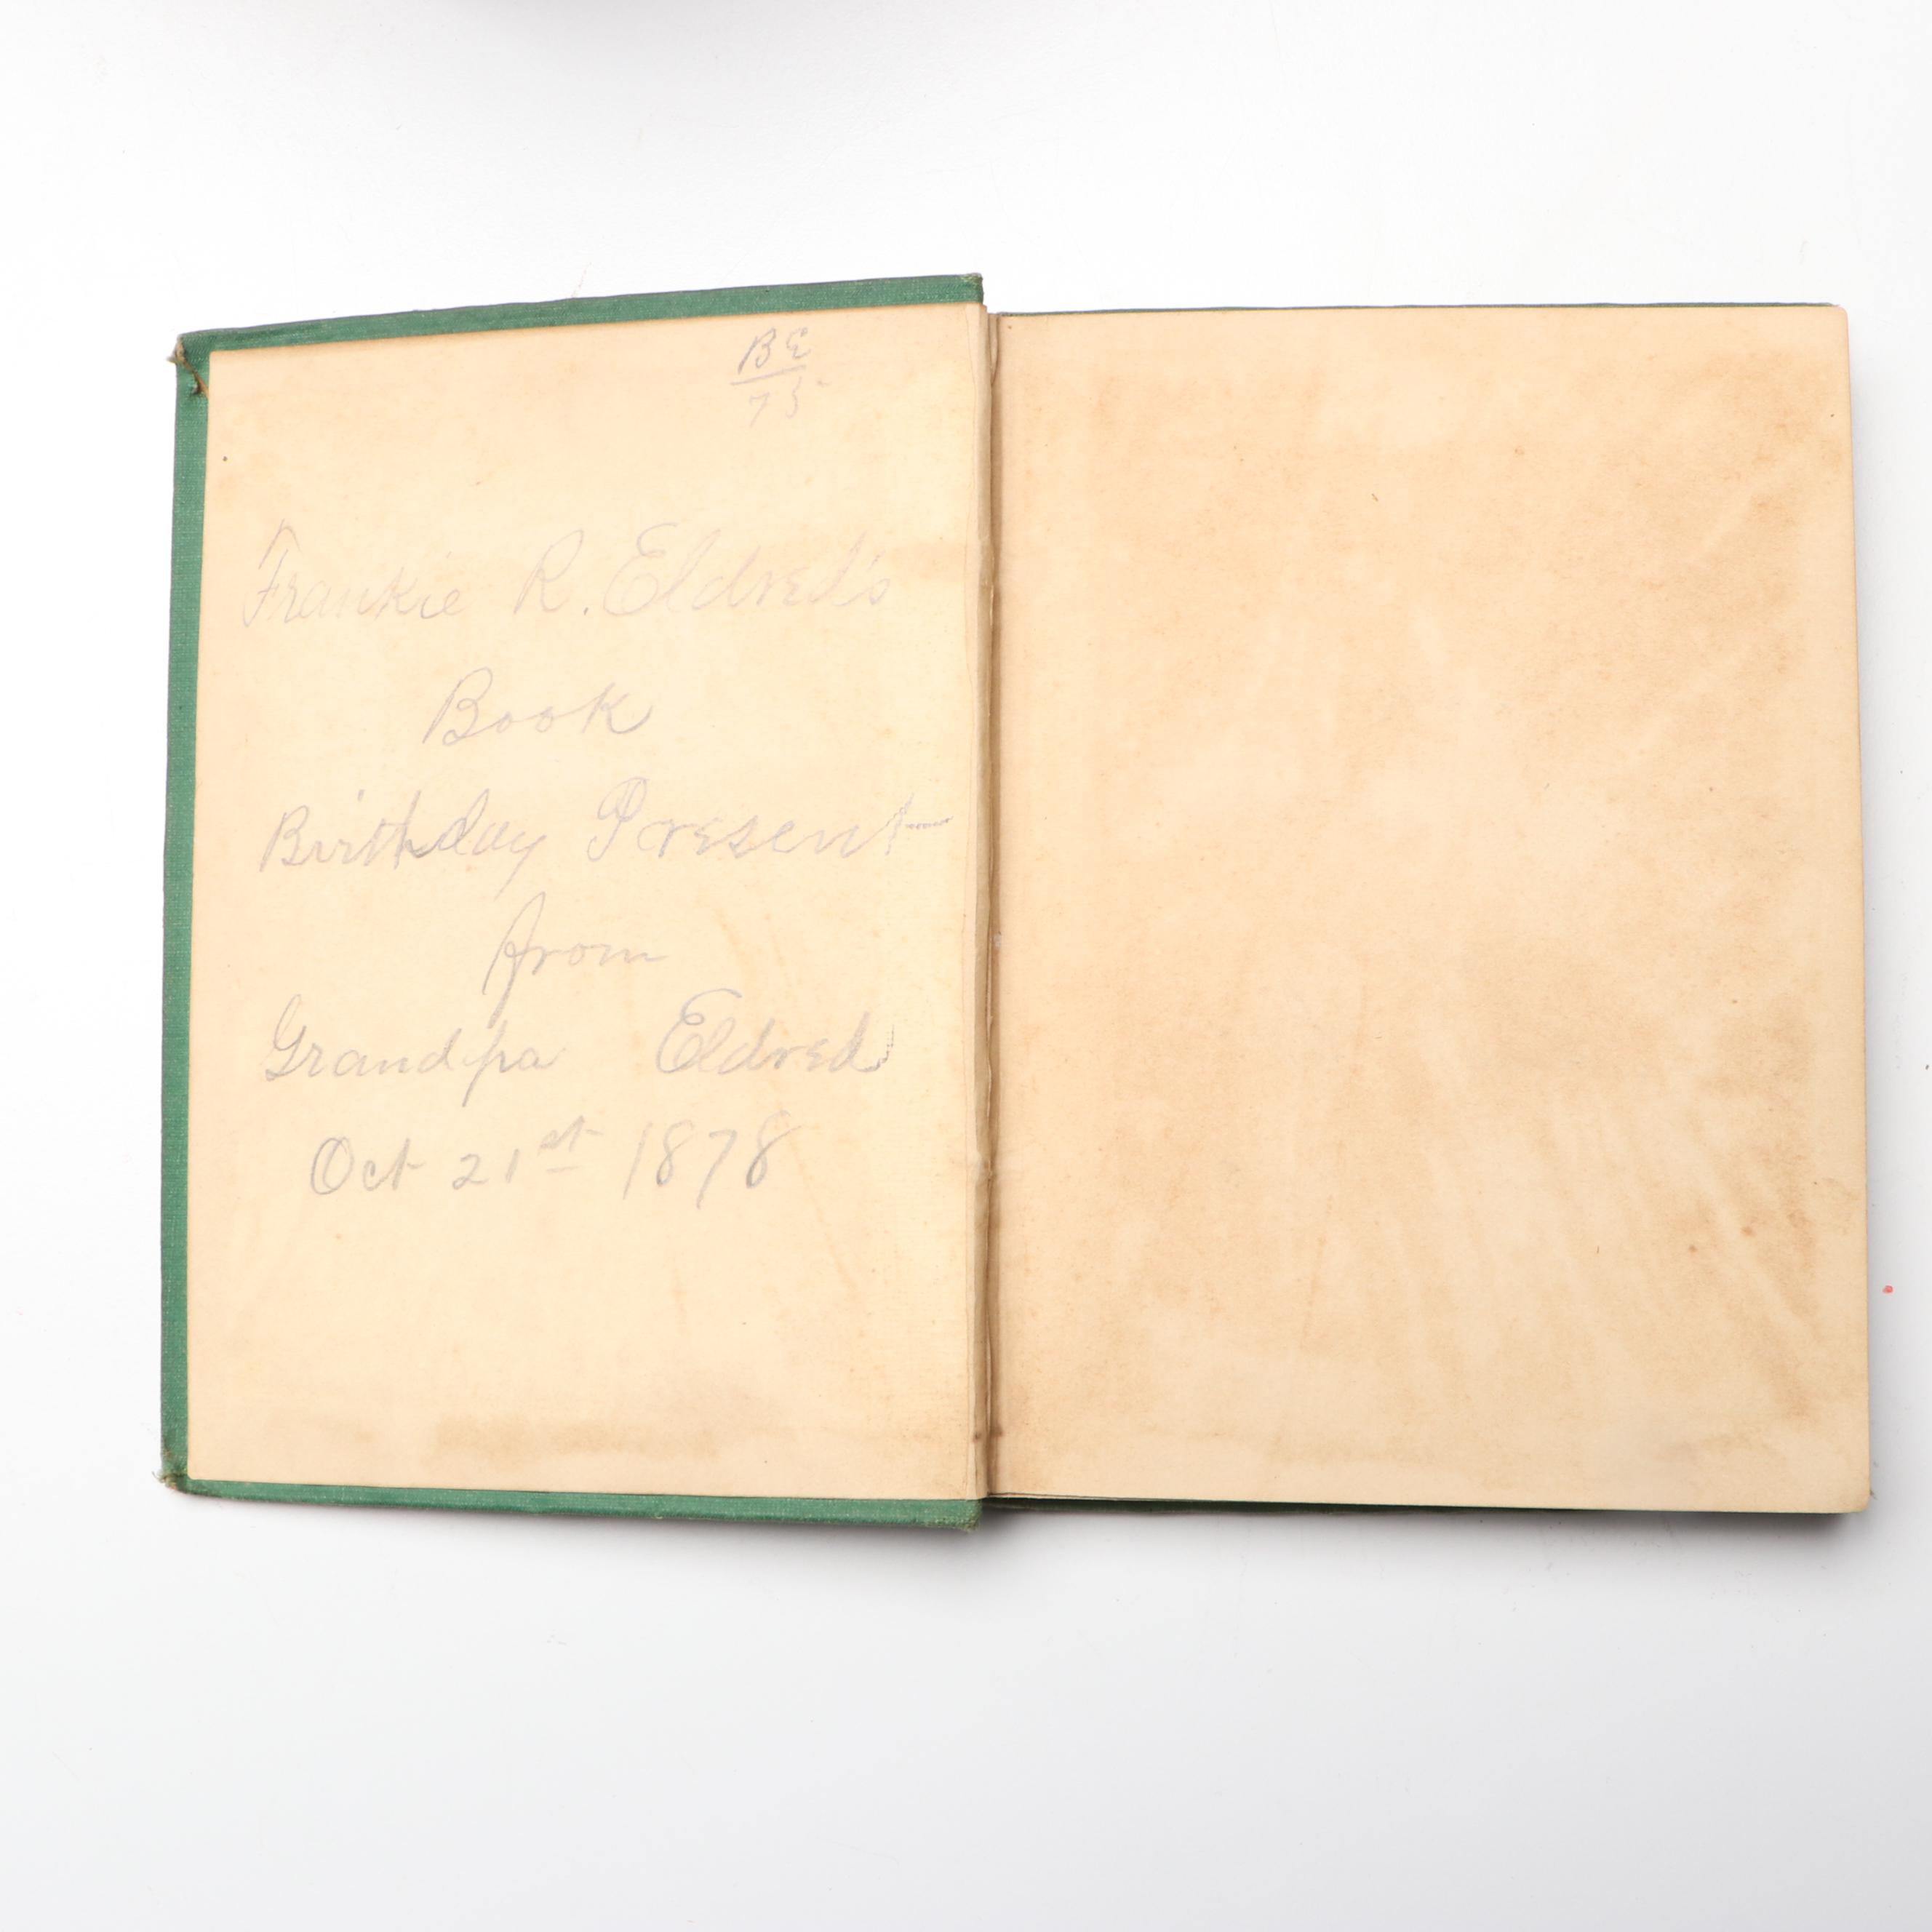 BE
75
Frankie R. Eldred's
Book
Birthday Present
from
Grandpa Eldred
Oct 21st 1878